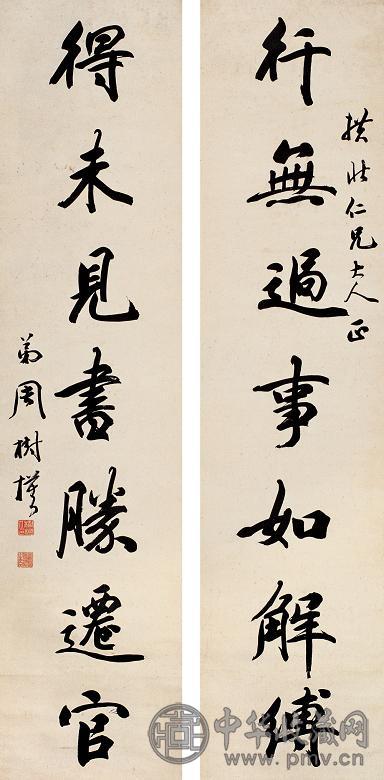 行無過事如解縛
仁兄大人正
得未見書勝遷官
弟周樹模
中华收藏网
www.pmv.cn